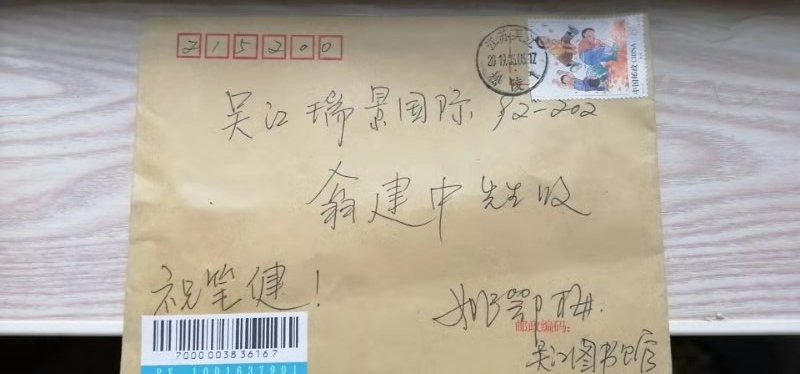 215200
中国邮政 CHINA
2019.06.05.17
吴江瑞景国际92-202
翁建中先生收
祝笔健!
姚鄂梅.
邮政编码:
吴江图书馆
7000003836167
PY 1001637901